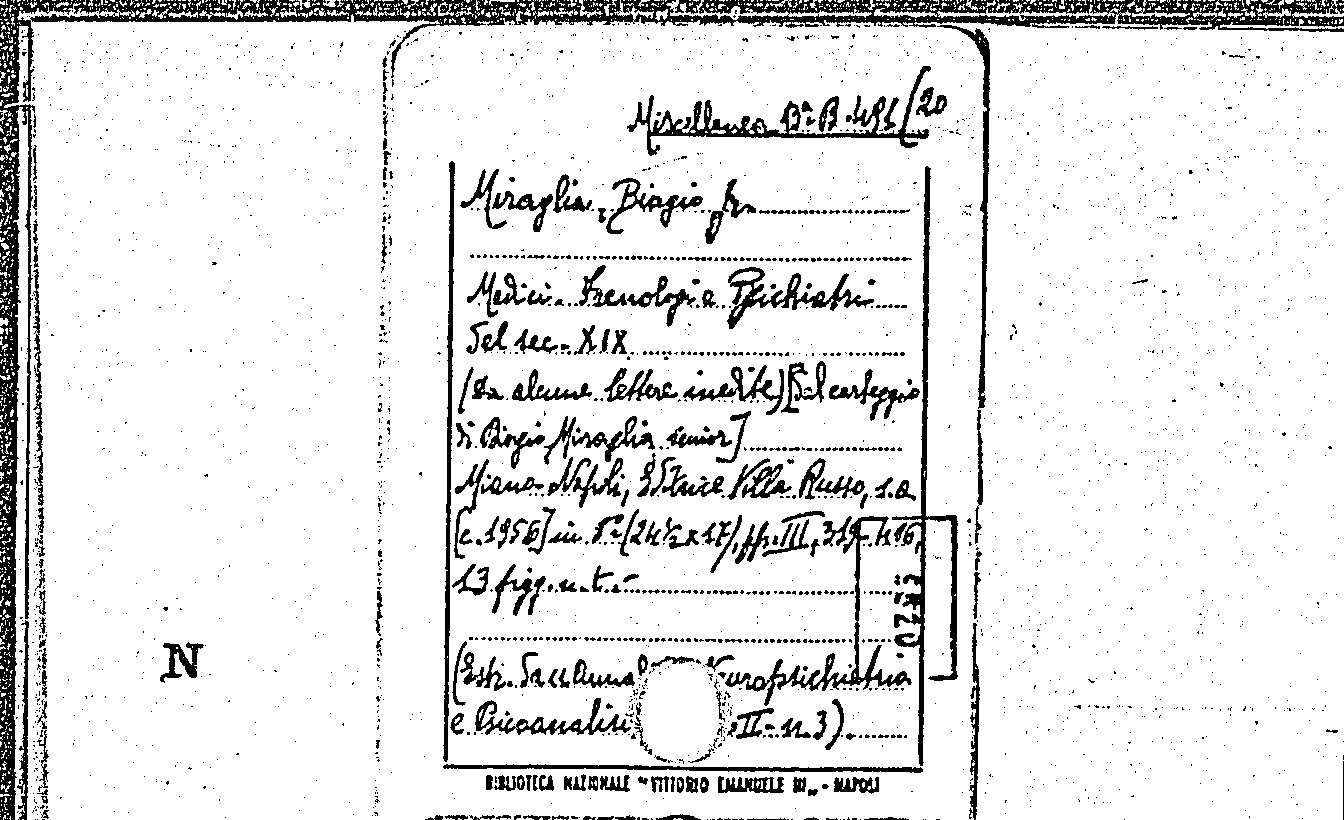 Miscellanea Bª B.491/20
Miraglia, Biagio jr.
Medici. Frenologi e Psichiatri
del sec. XIX
(da alcune lettere inedite) [Dal carteggio
di Biagio Miraglia senior]
Miano-Napoli, Editrice Villa Russo, s.a.
[c. 1956] in 8º (24½x17), pp. III, 319-416,
13 figg. n. t.-
(Estr. Neuropsichiatria
e Psicoanalisi II- n.3).
N
BIBLIOTECA NAZIONALE "VITTORIO EMANUELE III" - NAPOLI